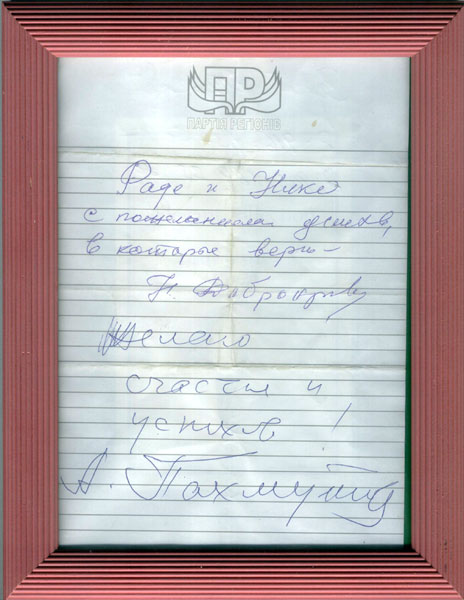 ПР
ПАРТІЯ РЕГІОНІВ
Раде и Нике
с пожеланием успехов,
в которые верю –
Н. Добронравов
Желаю
счастья и
успехов!
А. Пахмутова